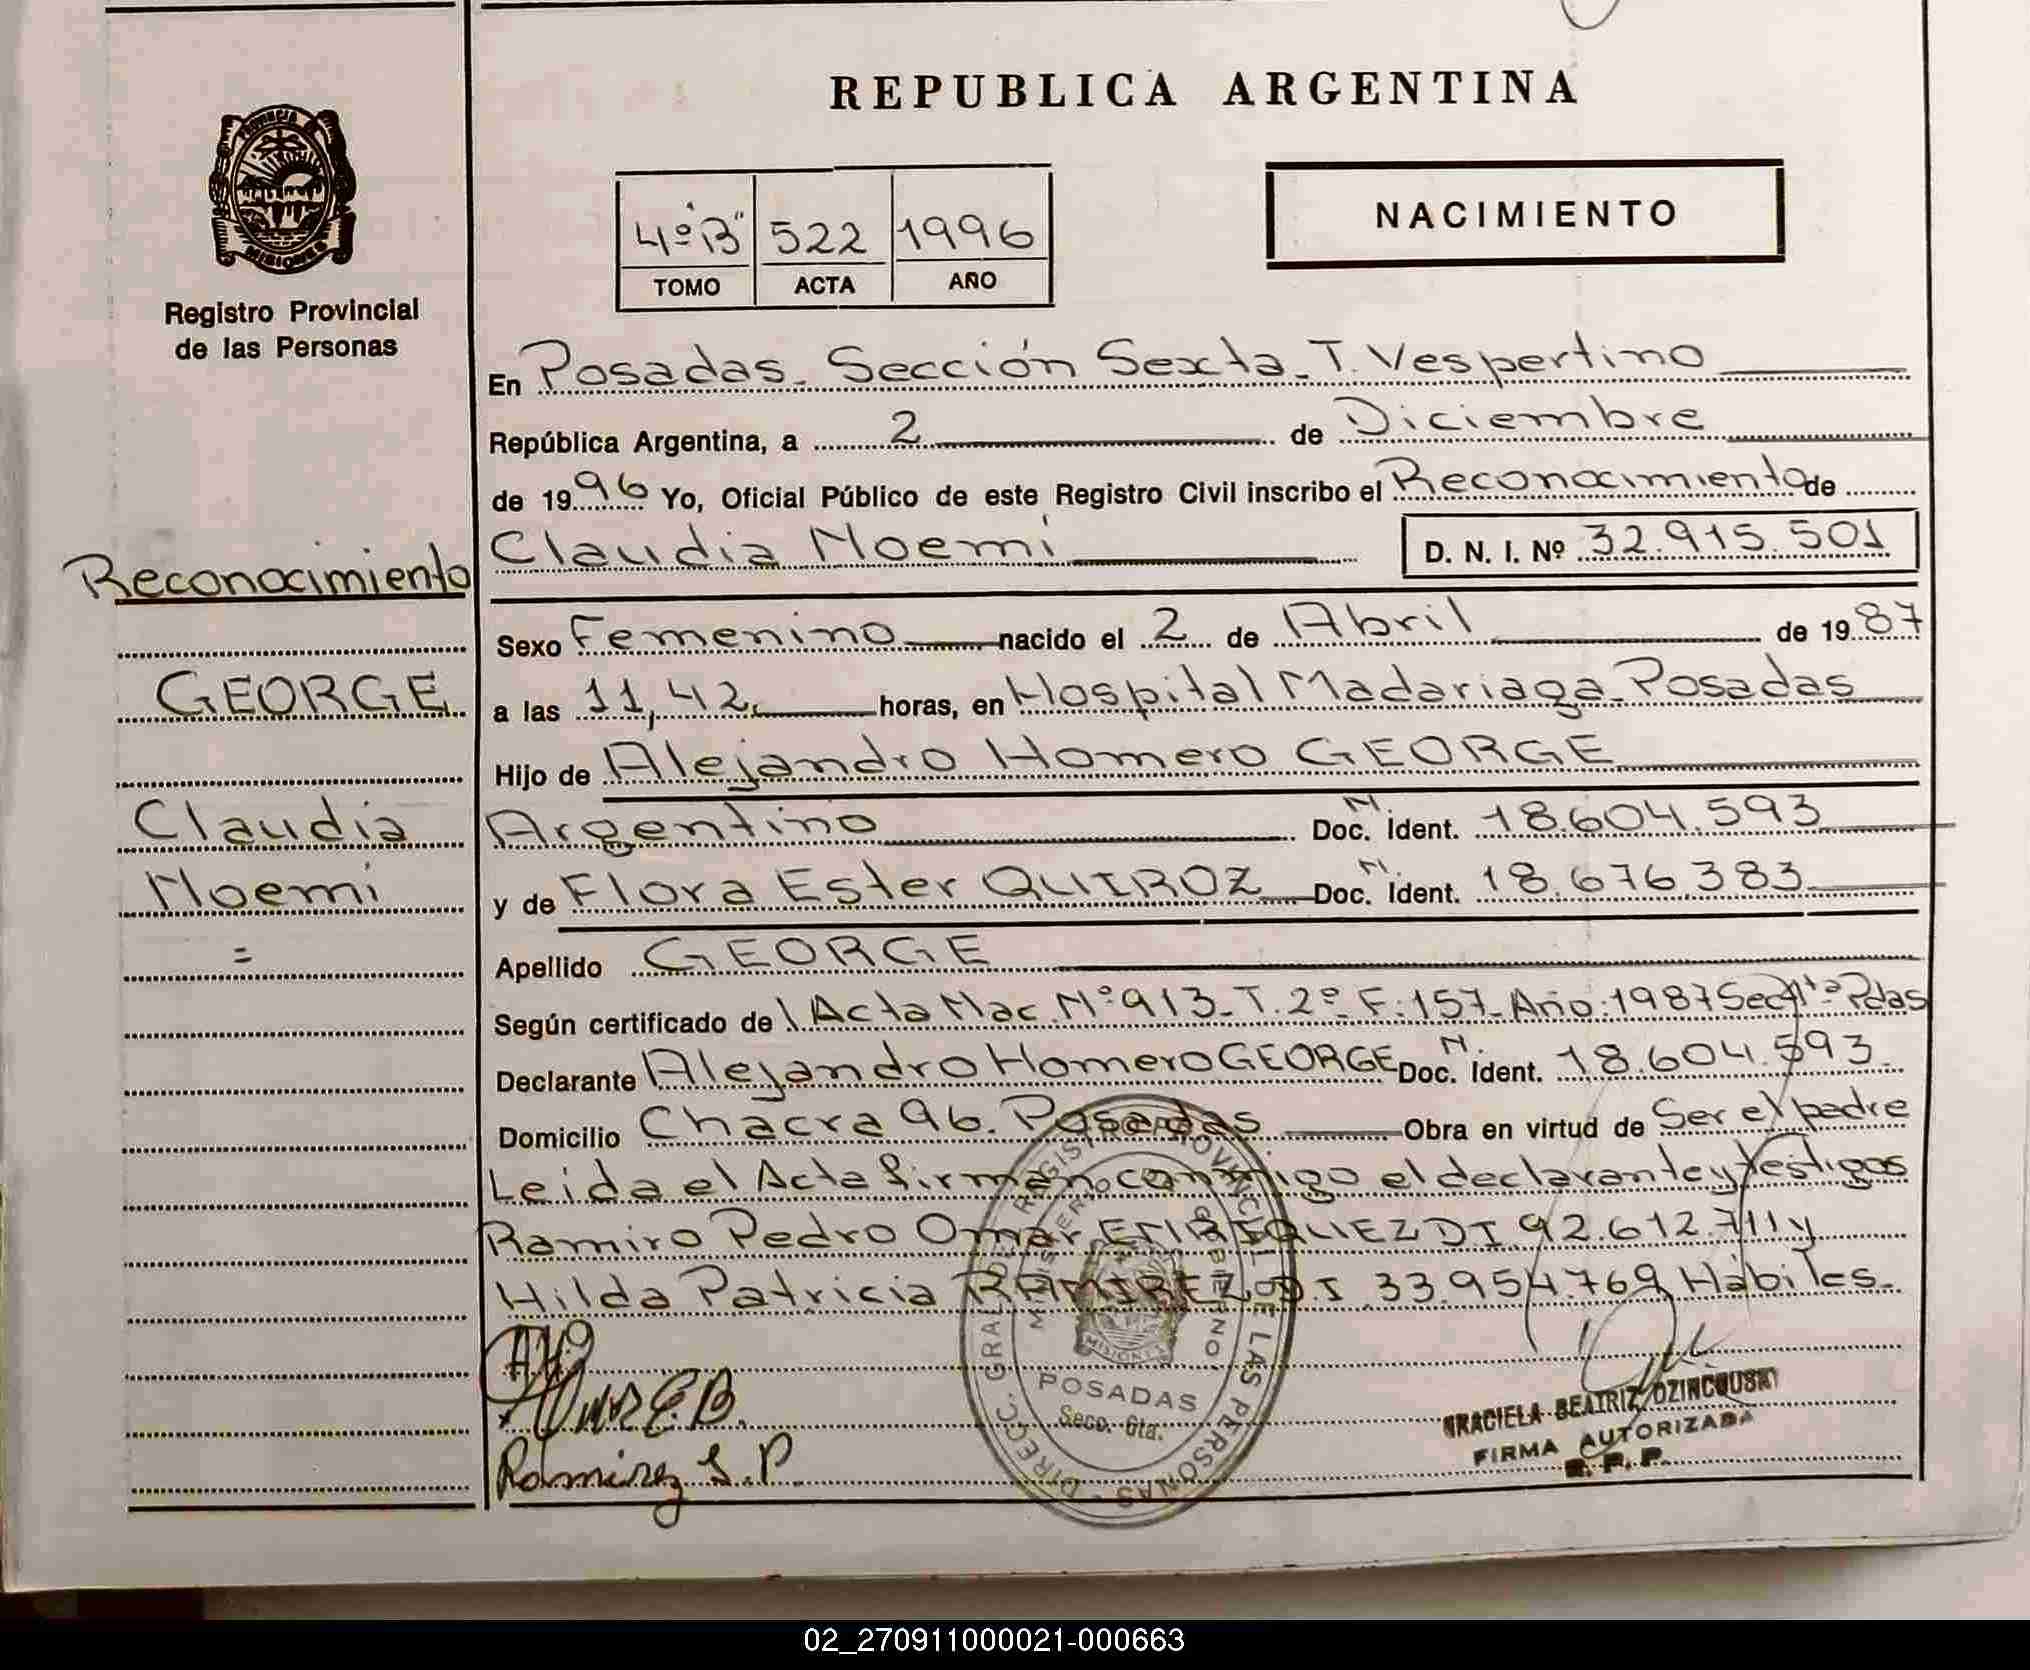 REPUBLICA ARGENTINA
PROVINCIA
MISIONES
Registro Provincial
de las Personas
4º "B" 522 1996
TOMO ACTA AÑO
NACIMIENTO
En Posadas - Sección Sexta - T. Vespertino
República Argentina, a 2 de Diciembre
de 1996 Yo, Oficial Público de este Registro Civil inscribo el Reconocimiento de
Claudia Noemi D. N. I. Nº 32.915.501
Sexo Femenino nacido el 2 de Abril de 1987
a las 11,42 horas, en Hospital Madariaga - Posadas
Hijo de Alejandro Homero GEORGE
Argentino Doc. N. Ident. 18.604.593
y de Flora Ester QUIROZ Doc. N. Ident. 18.676.383
Apellido GEORGE
Según certificado de Acta Nac. Nº 913 - T. 2º - F: 157 - Año: 1987 Sec. Pdas
Declarante Alejandro Homero GEORGE Doc. N. Ident. 18.604.593
Domicilio Chacra 96. Posadas Obra en virtud de Ser el padre
Leida el Acta firman conmigo el declarante y testigos
Ramiro Pedro Omar ENRIQUEZ DI 92.612.711 y
Hilda Patricia RAMIREZ D.I 33.954.769 Hábiles.
Reconocimiento
GEORGE
Claudia
Noemi
=
Ramirez
DIRECC. GRAL. DE REGISTRO PROVINCIAL DE LAS PERSONAS
MINISTERIO GOBIERNO
MISIONES
POSADAS
Secc. 6ta.
GRACIELA BEATRIZ DZINCOUSKY
FIRMA AUTORIZADA
R. P. P.
02_270911000021-000663